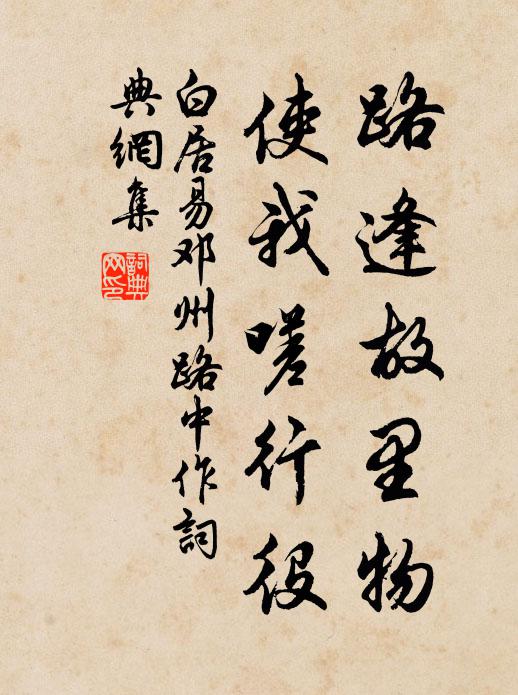 路逢故里物
使我嗟行役
白居易邓州路中作詞
典網集
詞典网印